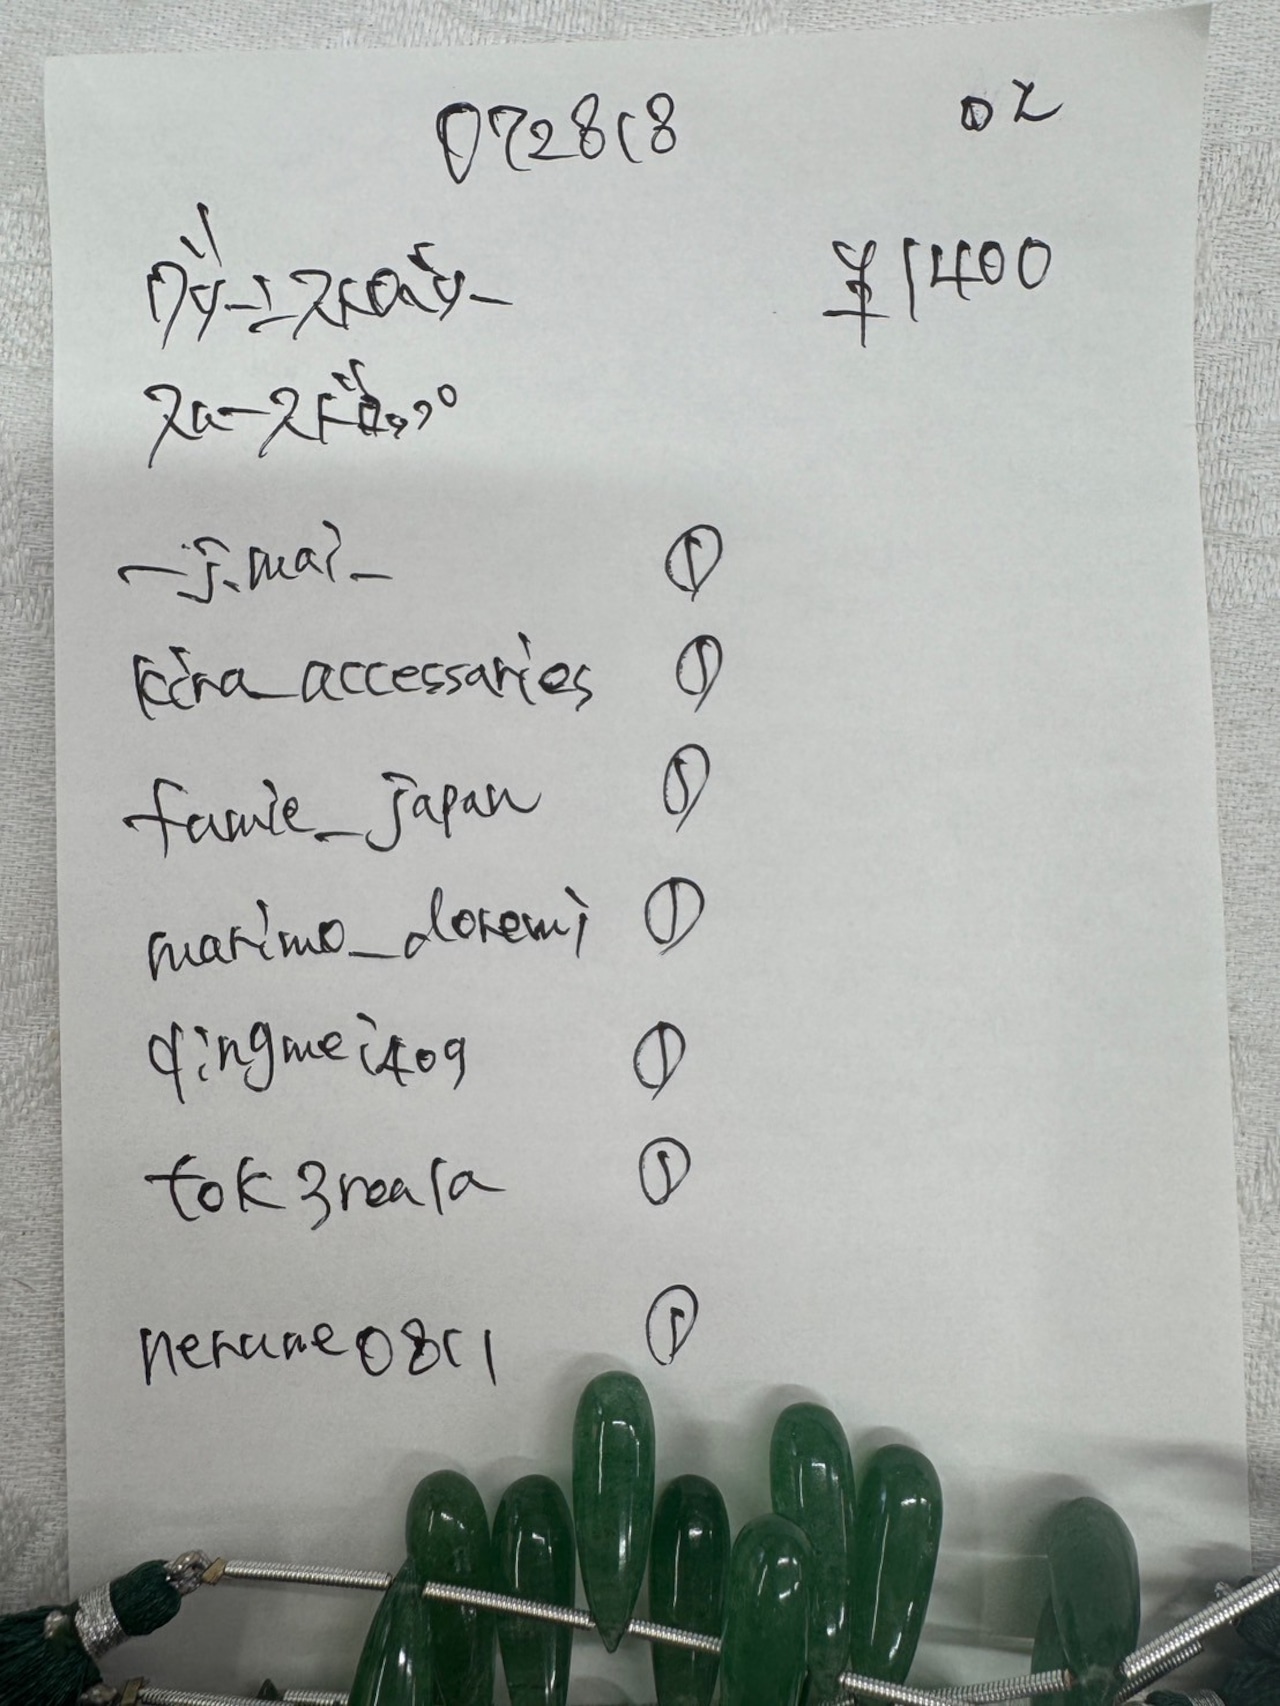 072818 OK
グリーンストロベリー
スムースドロップ
¥1400
_j.mai_ ①
kira_accessaries ①
fumie_japan ①
marimo_doremi ①
qingmei409 ①
tok3reala ①
nerune0811 ①